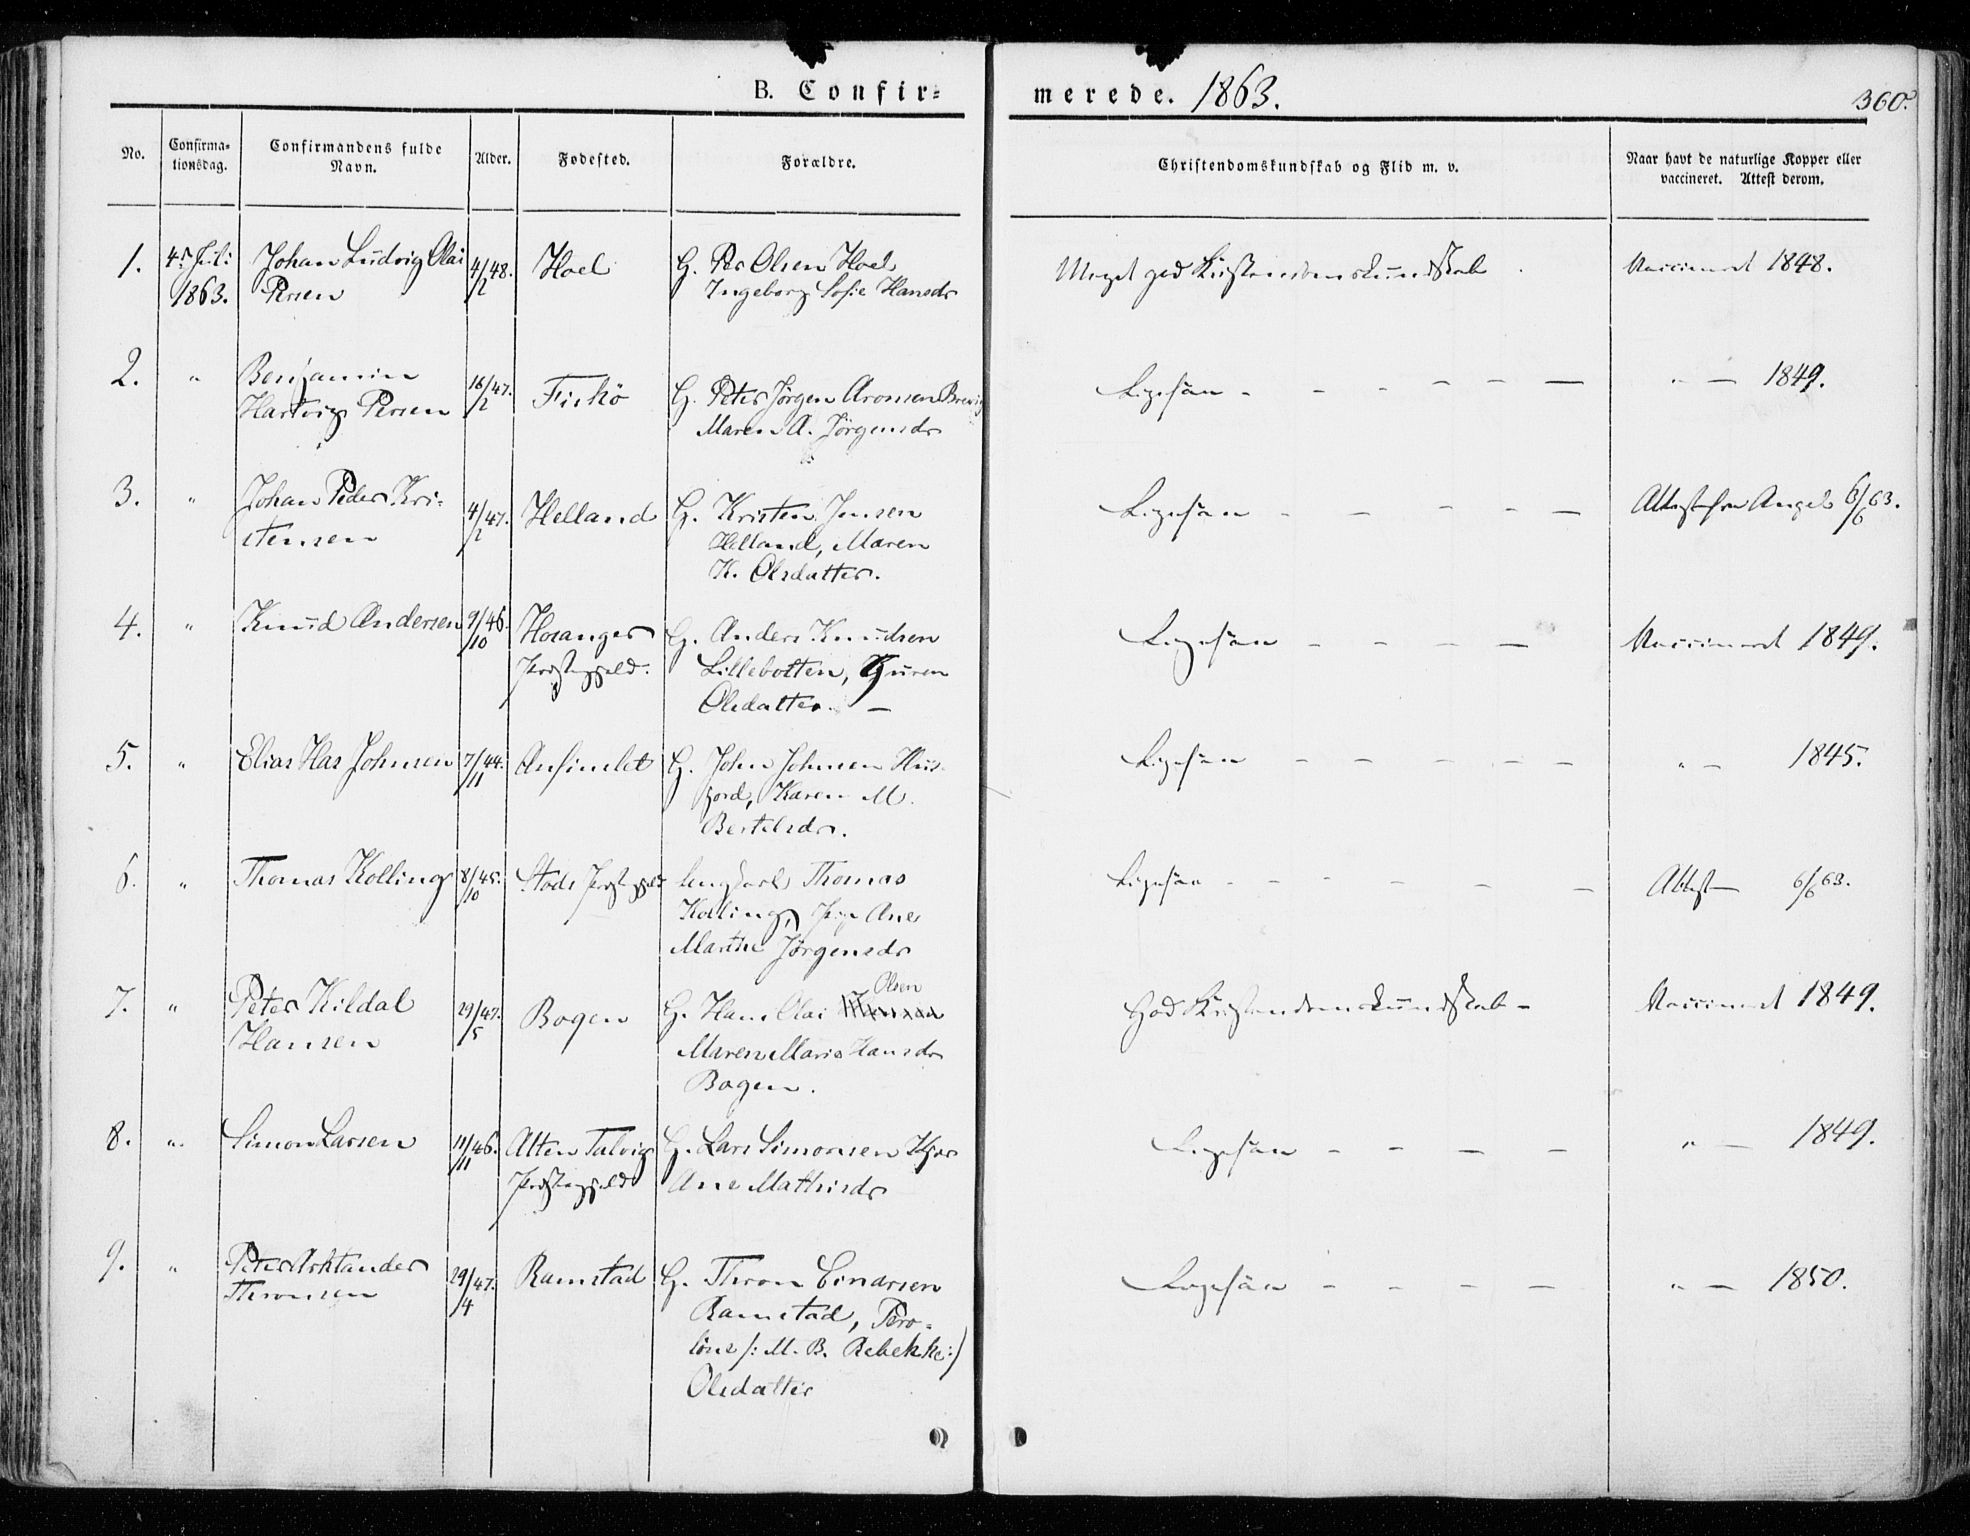 B. Confir- merede. 1863. 360.
No. Confirma-tionsdag. Confirmandens fulde Navn. Alder. Fødested. Forældre. Christendomskundskab og Flid m. v. Naar havt de naturlige Kopper eller vaccineret. Attest derom.
1. 4. Juli Johan Ludvig Olai 4/2 48. Hoel G. Per Olsen Hoel Meget god Kristendomskundskab Vaccineret 1848.
1863. Persen Ingeborg Sofie Hansdr
2. " Benjamin 16/2 47. G. Peter Jørgen Aronsen Brevig Ligesaa - - - - - - " — 1849.
Hartvig Persen Maren A. Jørgensdr
3. " Johan Peder Kri- 4/2 47. Helland G. Kristen Jensen Ligesaa - - - - - - Attest fra 6/6 63.
stensen Helland, Maren
K. Olsdatter.
4. " Knud Andersen 9/10 46. Hosanger G. Anders Knudsen Ligesaa - - - - Vaccineret 1849.
Præstegjeld. Lillebotten, Guren
Olsdatter. —
5. " Elias Johnsen 7/11 44. G. John Johnsen Hus- Ligesaa - - - - - - " — 1845.
fjord, Karen M.
Bertelsdr.
6. " Thomas Kolling 8/10 45. Stods Præstegjeld Ungkarl Thomas Ligesaa - - - - - - Attest — 6/6 63.
Kolling, Pige Ane
Marthe Jørgensdr
7. " Peter Kildal 29/5 47. Bogen G. Hans Olai Olsen God Kristendomskundskab - Vaccineret 1849.
Hansen Maren Marie Hansdr
Bogen.
8. " Simon Larsen 11/11 46. Alten Talvig G. Lars Simonsen Ligesaa - - - - " — 1849.
Præstegjeld Ane Mathisdr
9. " Peter 29/4 47. Ramstad G. Thron Einarsen Ligesaa - - - - - " — 1850.
Thronsen Ramstad, Pero-
løne /: M. B. Rebekke :/
Olsdatter